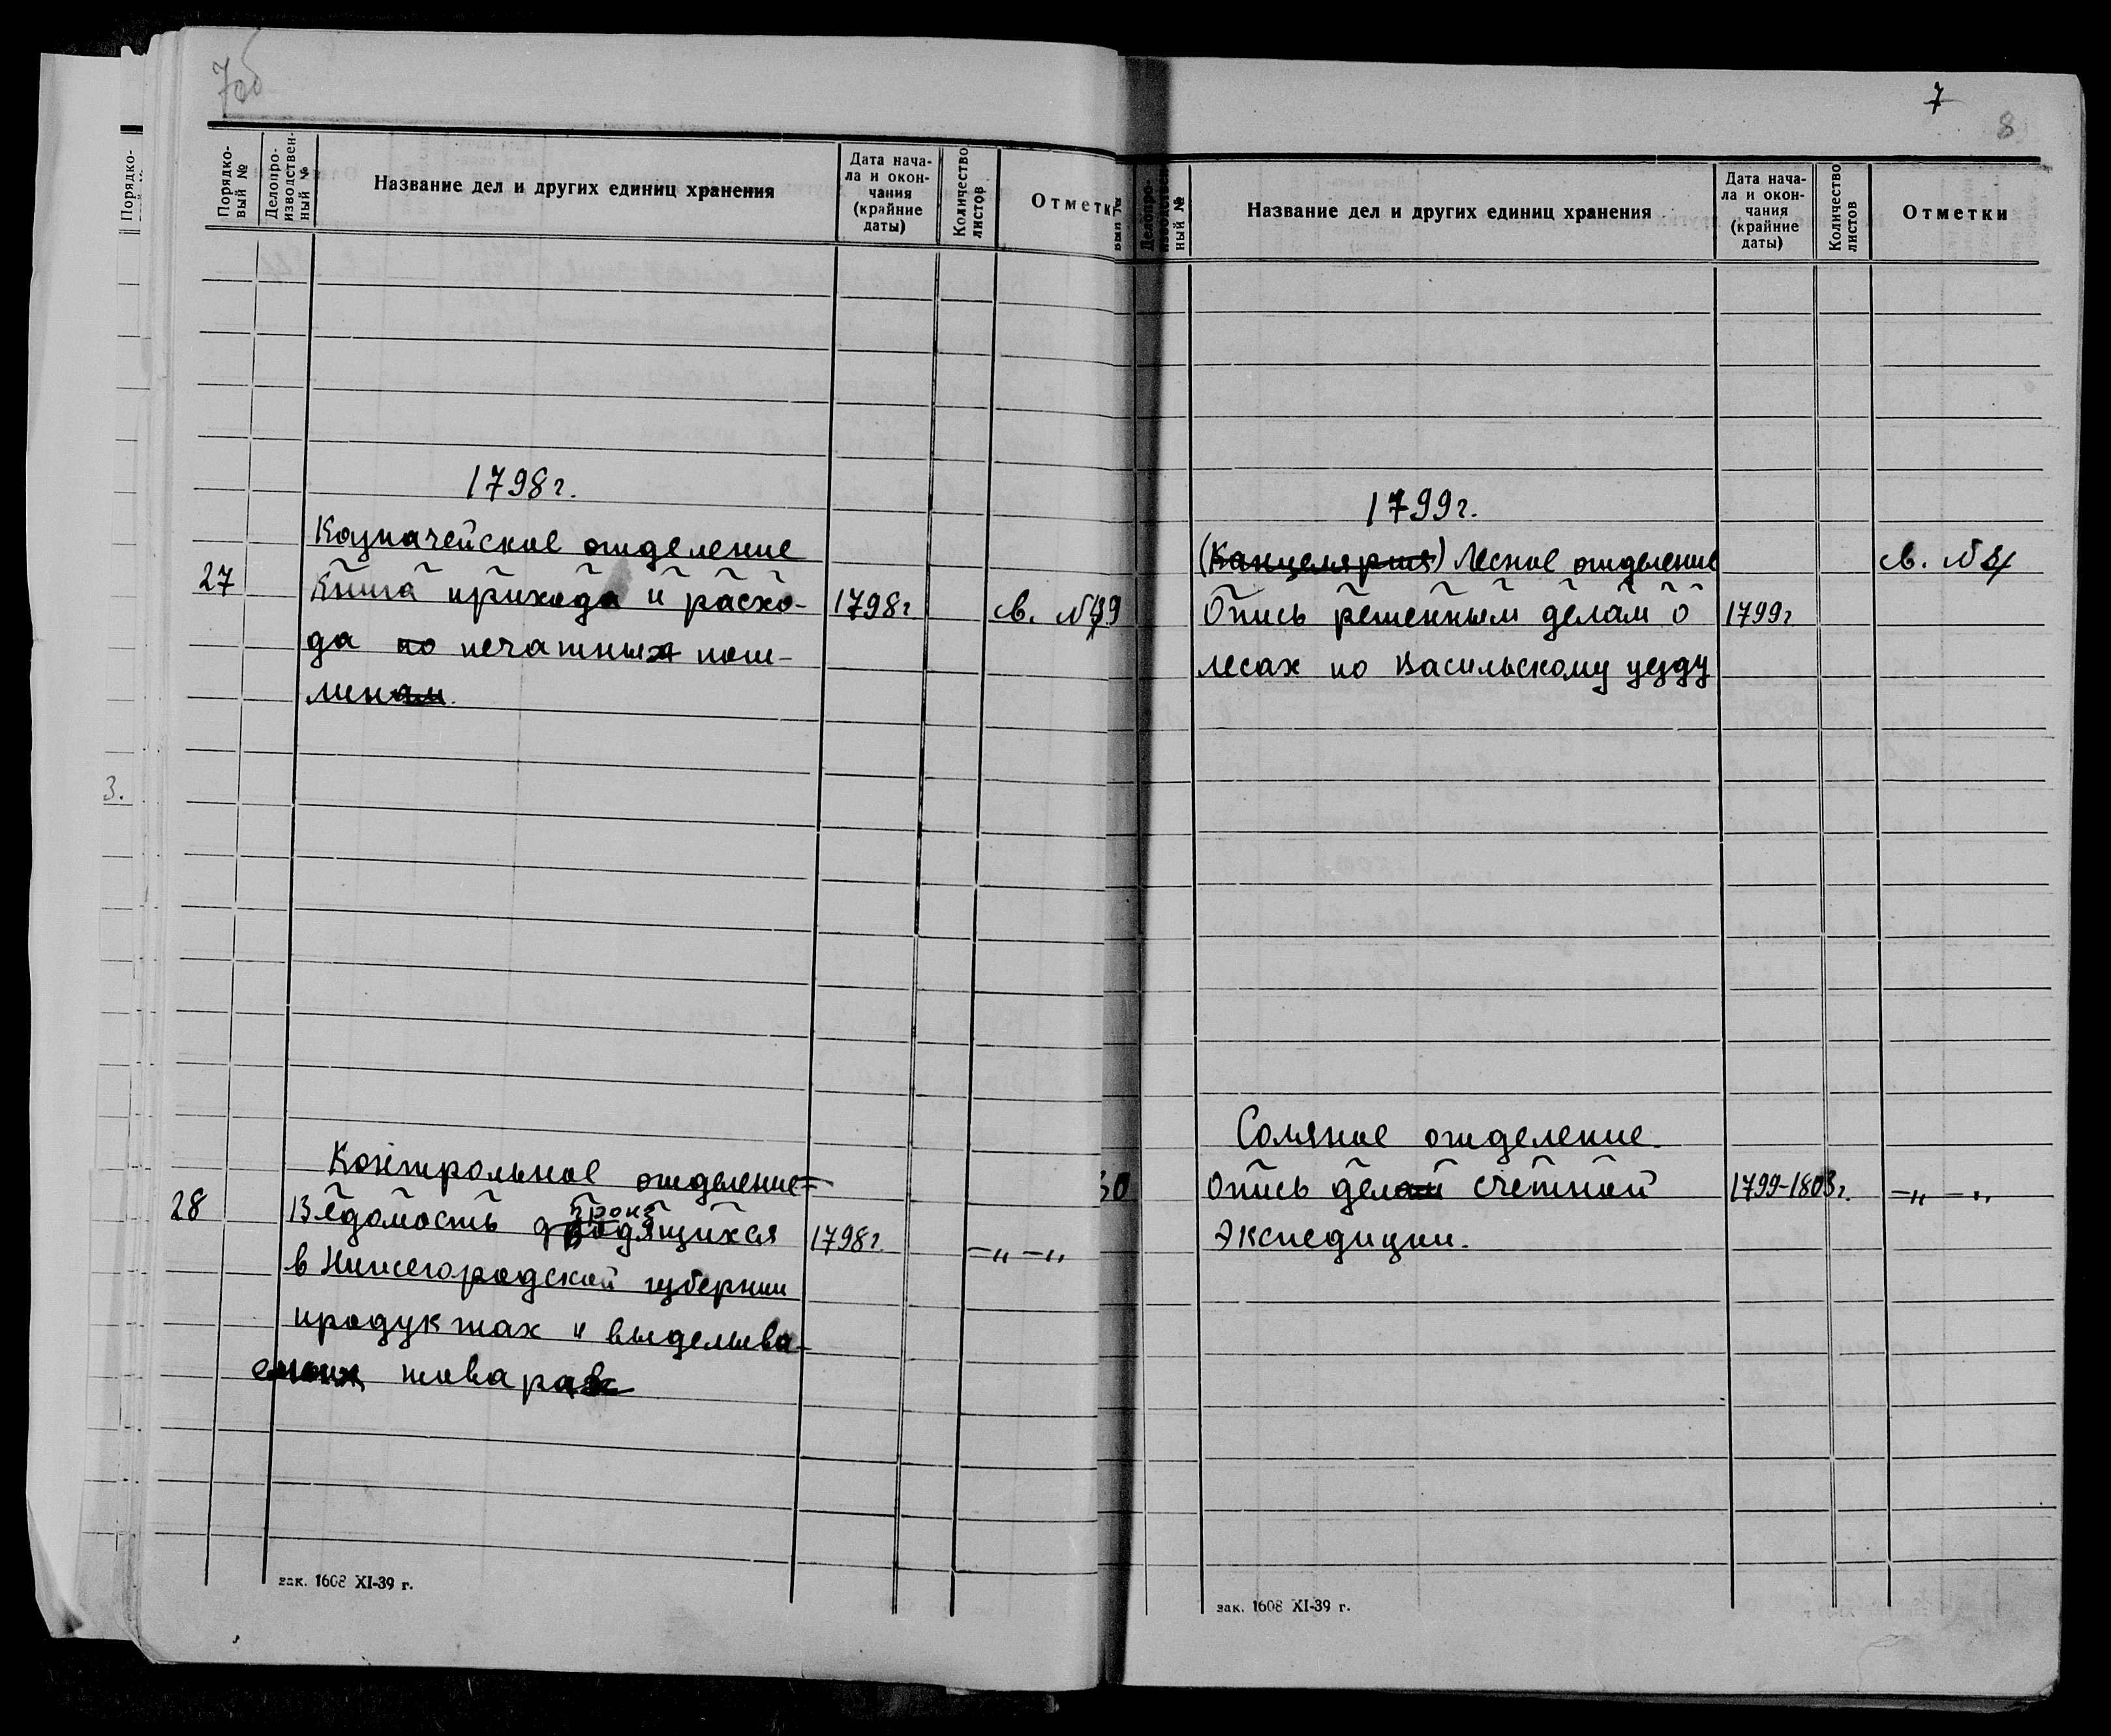 7об
Порядко-
вый №
Делопро-
изводствен-
ный №
Название дел и других единиц хранения
Дата нача-
ла и окон-
чания
(крайние
даты)
Количество
листов
Отметк
1798 г.
Казначейское отделение
27 Книга прихода и расхо- 1798 г св. №
да по печатных пош-
лин
Контрольное отделение
28 Ведомость 1798 г. -„-„
в Нижегородской губернии
продуктах и выделыва-
емых товарах
зак. 1608 XI-39 г.
Порядко-
3.
7
8
Делопро-
изводствен
ный №
Название дел и других единиц хранения
Дата нача-
ла и окон-
чания
(крайние
даты)
Количество
листов
Отметки
1799 г.
(Канцелярия) Лесное отделение св. №
Опись решенным делам о 1799 г
лесах по Васильскому уезду
Соляное отделение.
30 Опись дел счетной 1799-1803 г. -„-„
Экспедиции.
зак. 1608 XI-39 г.